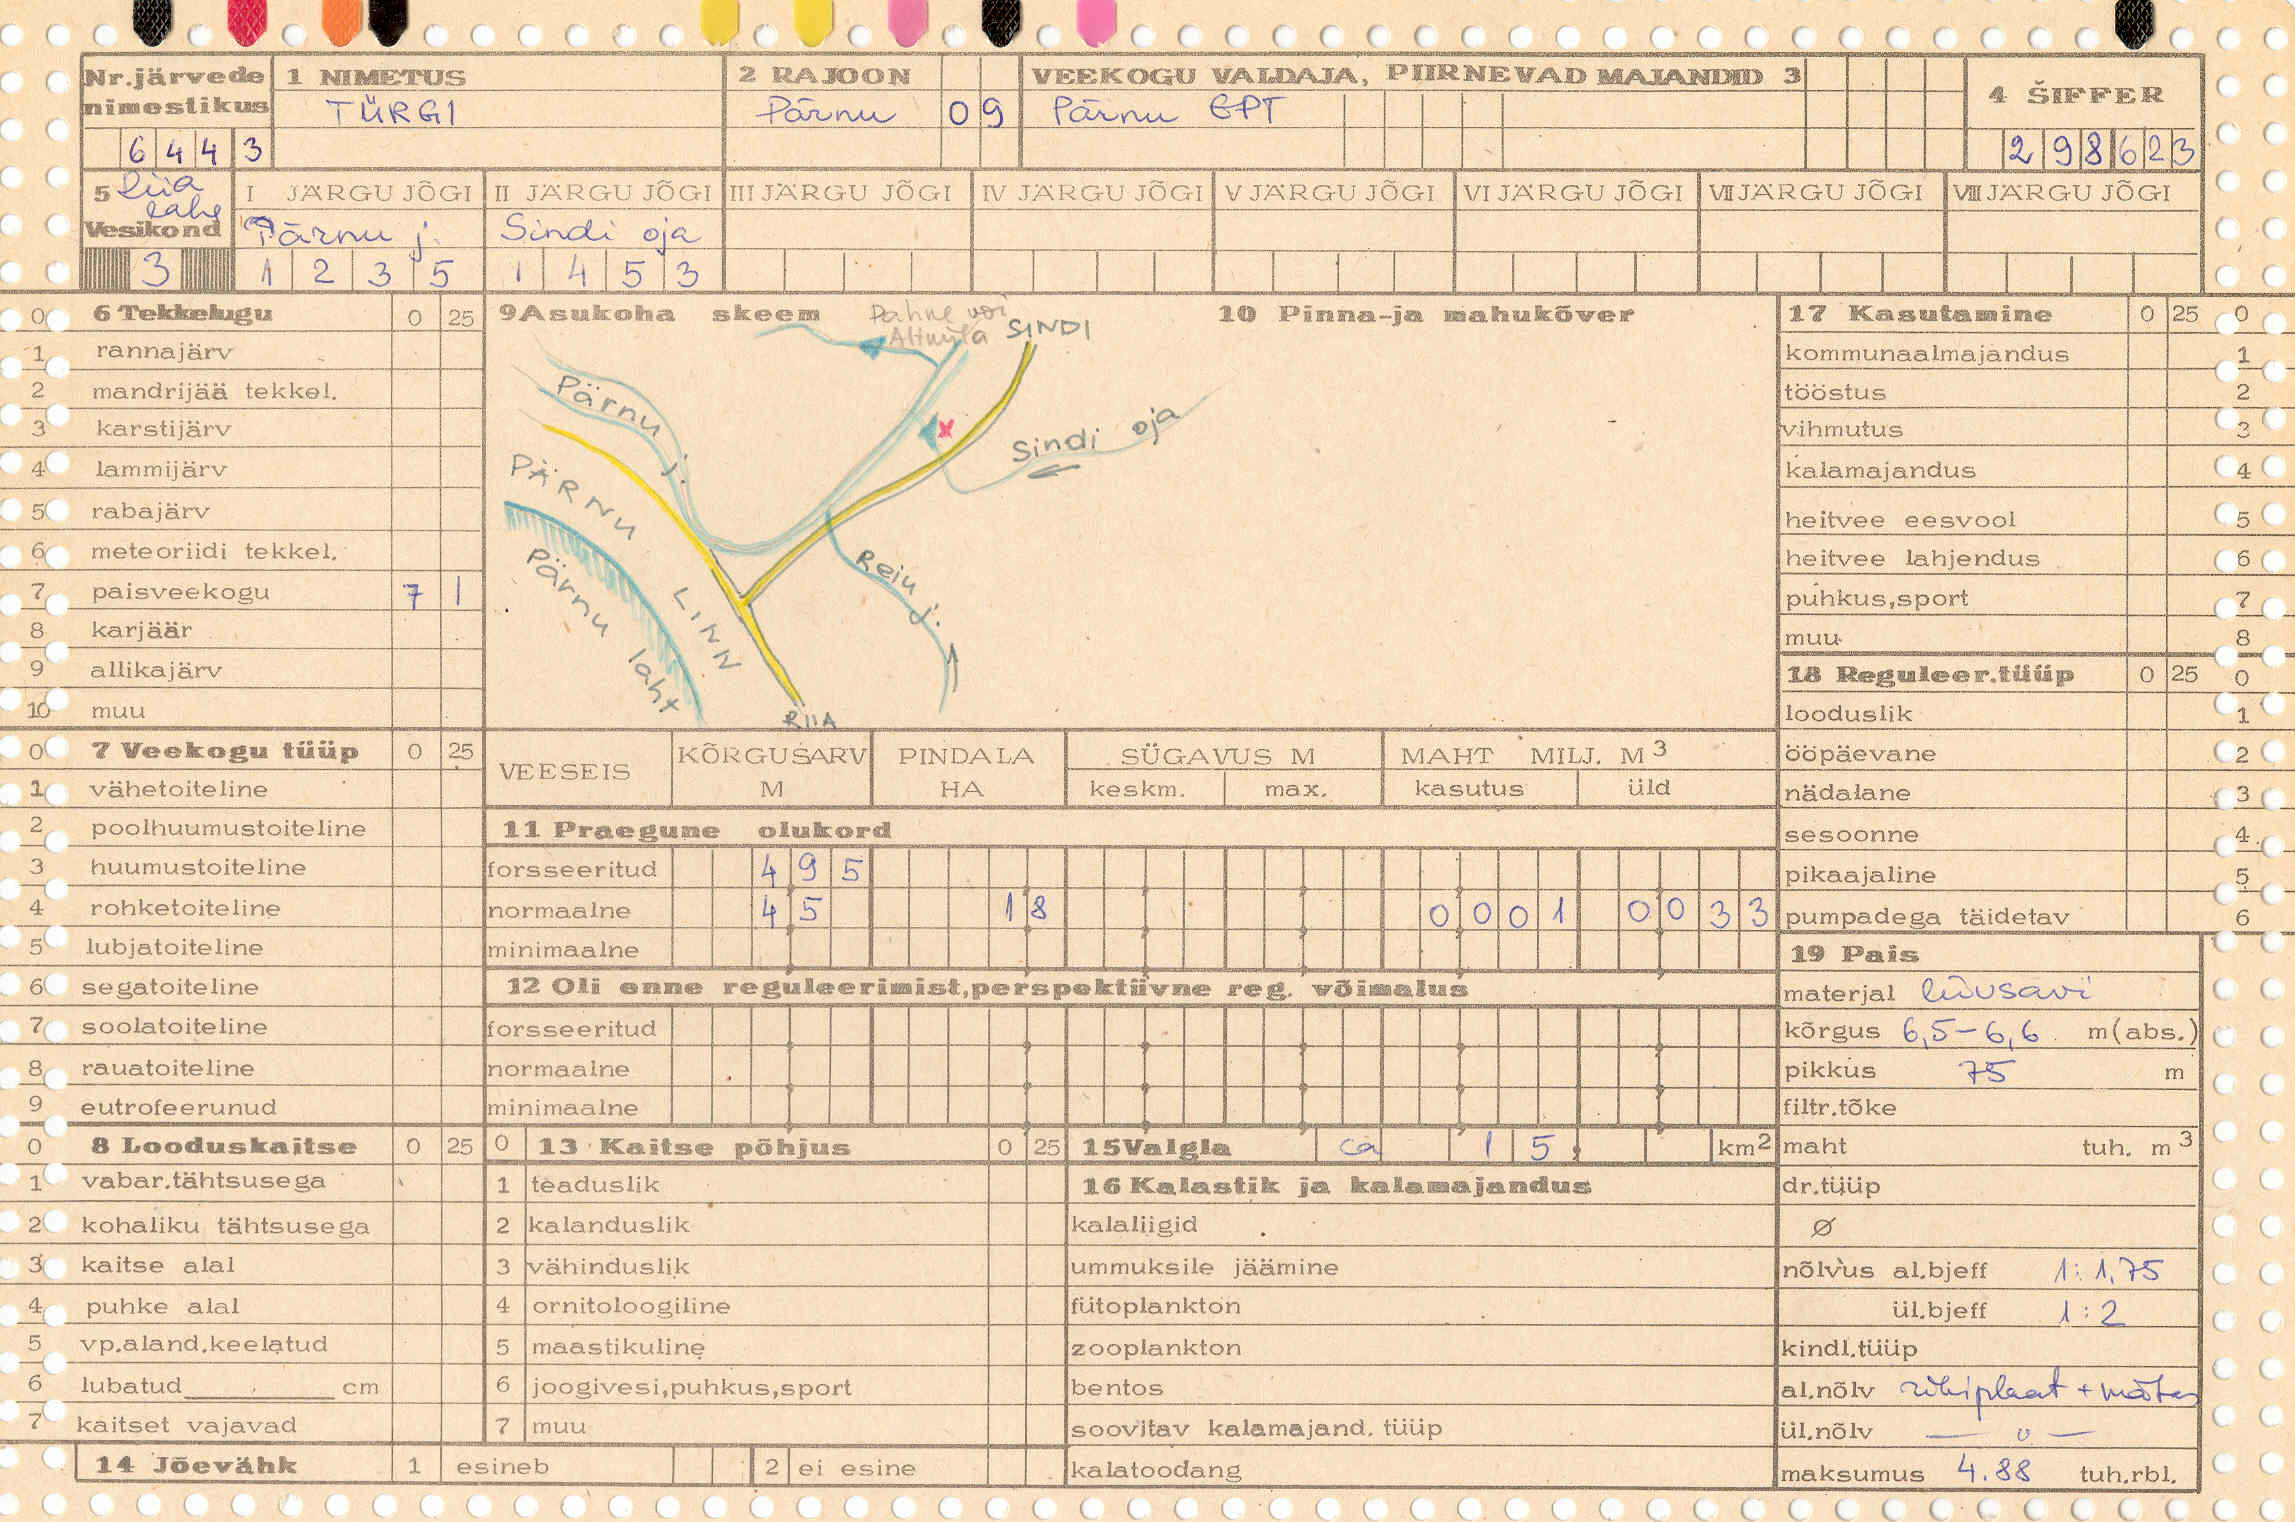 Nr.järvede nimestikus
6 4 4 3
1 NIMETUS
TÜRGI
2 RAJOON
Pärnu 0 9
VEEKOGU VALDAJA, PIIRNEVAD MAJANDID 3
Pärnu EPT
4 ŠIFFER
2 9 8 6 2 3
5 Liia lahe
Vesikond
3
I JÄRGU JÕGI
Pärnu j.
1 2 3 5
II JÄRGU JÕGI
Sindi oja
1 4 5 3
III JÄRGU JÕGI
IV JÄRGU JÕGI
V JÄRGU JÕGI
VI JÄRGU JÕGI
VII JÄRGU JÕGI
VIII JÄRGU JÕGI
0 6 Tekkelugu 0 25
1 rannajärv
2 mandrijää tekkel.
3 karstijärv
4 lammijärv
5 rabajärv
6 meteoriidi tekkel.
7 paisveekogu 7 1
8 karjäär
9 allikajärv
10 muu
0 7 Veekogu tüüp 0 25
1 vähetoiteline
2 poolhuumustoiteline
3 huumustoiteline
4 rohketoiteline
5 lubjatoiteline
6 segatoiteline
7 soolatoiteline
8 rauatoiteline
9 eutrofeerunud
0 8 Looduskaitse 0 25
1 vabar.tähtsusega
2 kohaliku tähtsusega
3 kaitse alal
4 puhke alal
5 vp.aland.keelatud
6 lubatud cm
7 kaitset vajavad
14 Jõevähk 1 esineb 2 ei esine
9 Asukoha skeem
või
SINDI
Pärnu j.
Sindi oja
PÄRNU LINN
Pärnu laht
Reiu j.
RIIA
10 Pinna-ja mahukõver
VEESEIS
KÕRGUSARV M
PINDALA HA
SÜGAVUS M
keskm. max.
MAHT MILJ. M3
kasutus üld
11 Praegune olukord
forsseeritud 4 9 5
normaalne 4 5 1 8 0 0 0 1 0 0 3 3
minimaalne
12 Oli enne reguleerimist,perspektiivne reg. võimalus
forsseeritud
normaalne
minimaalne
0 13 Kaitse põhjus 0 25
1 teaduslik
2 kalanduslik
3 vähinduslik
4 ornitoloogiline
5 maastikuline
6 joogivesi,puhkus,sport
7 muu
15 Valgla ca 1 5 , km2
16 Kalastik ja kalamajandus
kalaliigid
ummuksile jäämine
fütoplankton
zooplankton
bentos
soovitav kalamajand. tüüp
kalatoodang
17 Kasutamine 0 25 0
kommunaalmajandus 1
tööstus 2
vihmutus 3
kalamajandus 4
heitvee eesvool 5
heitvee lahjendus 6
puhkus,sport 7
muu 8
18 Reguleer.tüüp 0 25 0
looduslik 1
ööpäevane 2
nädalane 3
sesoonne 4
pikaajaline 5
pumpadega täidetav 6
19 Pais
materjal liivsavi
kõrgus 6,5-6,6 m(abs.)
pikkus 75 m
filtr.tõke
maht tuh. m3
dr.tüüp
Ø
nõlvus al.bjeff 1:1,75
ül.bjeff 1:2
kindl.tüüp
al.nõlv r/bplaat + mätas
ül.nõlv — " —
maksumus 4.88 tuh.rbl.